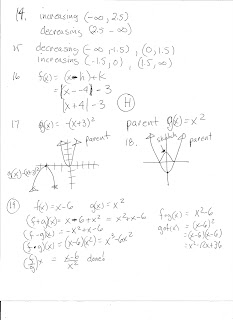 14. increasing (-∞, 2.5)
decreasing (2.5 -∞)
15 decreasing (-∞, -1.5), (0, 1.5)
increasing (-1.5, 0), (1.5, ∞)
16 f(x) = (x-h)+k
= |x--4| -3
|x+4| -3
(H)
17 g(x) = -(x+3)²
parent
parent g(x) = x²
18.
parent
19 f(x) = x-6 g(x) = x²
(f+g)(x) = x-6+x² = x²+x-6
(f-g)(x) = -x²+x-6
(f•g)(x) = (x-6)(x²) = x³-6x²
(f/g)x = x-6/x² done!
f∘g(x) = x²-6
g∘f(x) = (x-6)²
= (x-6)(x-6)
= x²-12x+36